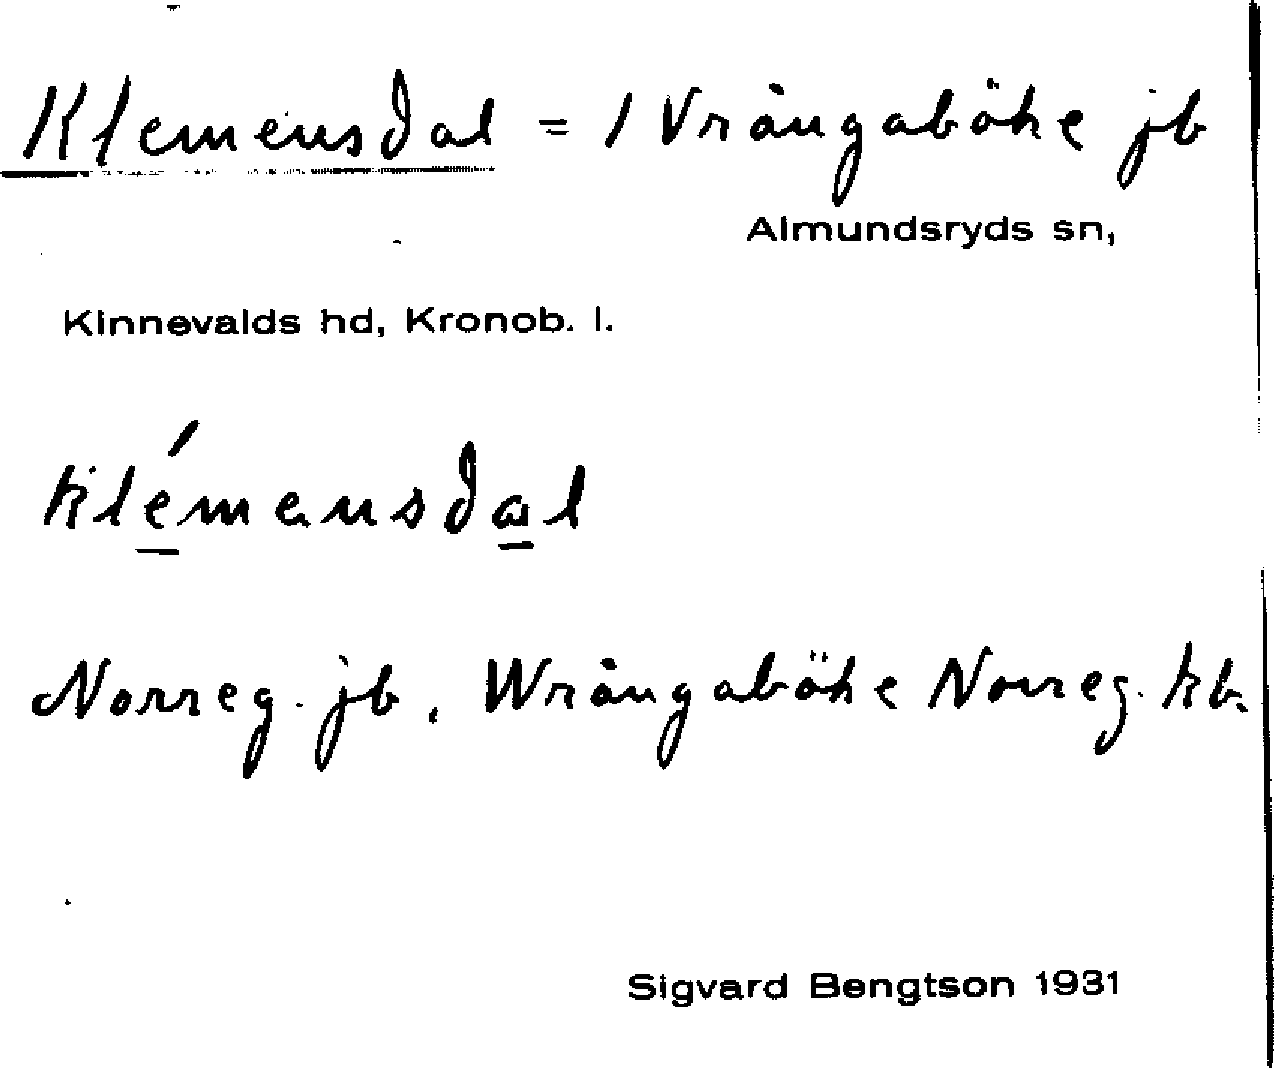 Klemensdal = 1 Vrångaböke jb
Almundsryds sn,
Kinnevalds hd, Kronob. l.
klémensdal
Norreg. jb, Wrångaböke Norreg. kb.
Sigvard Bengtson 1931